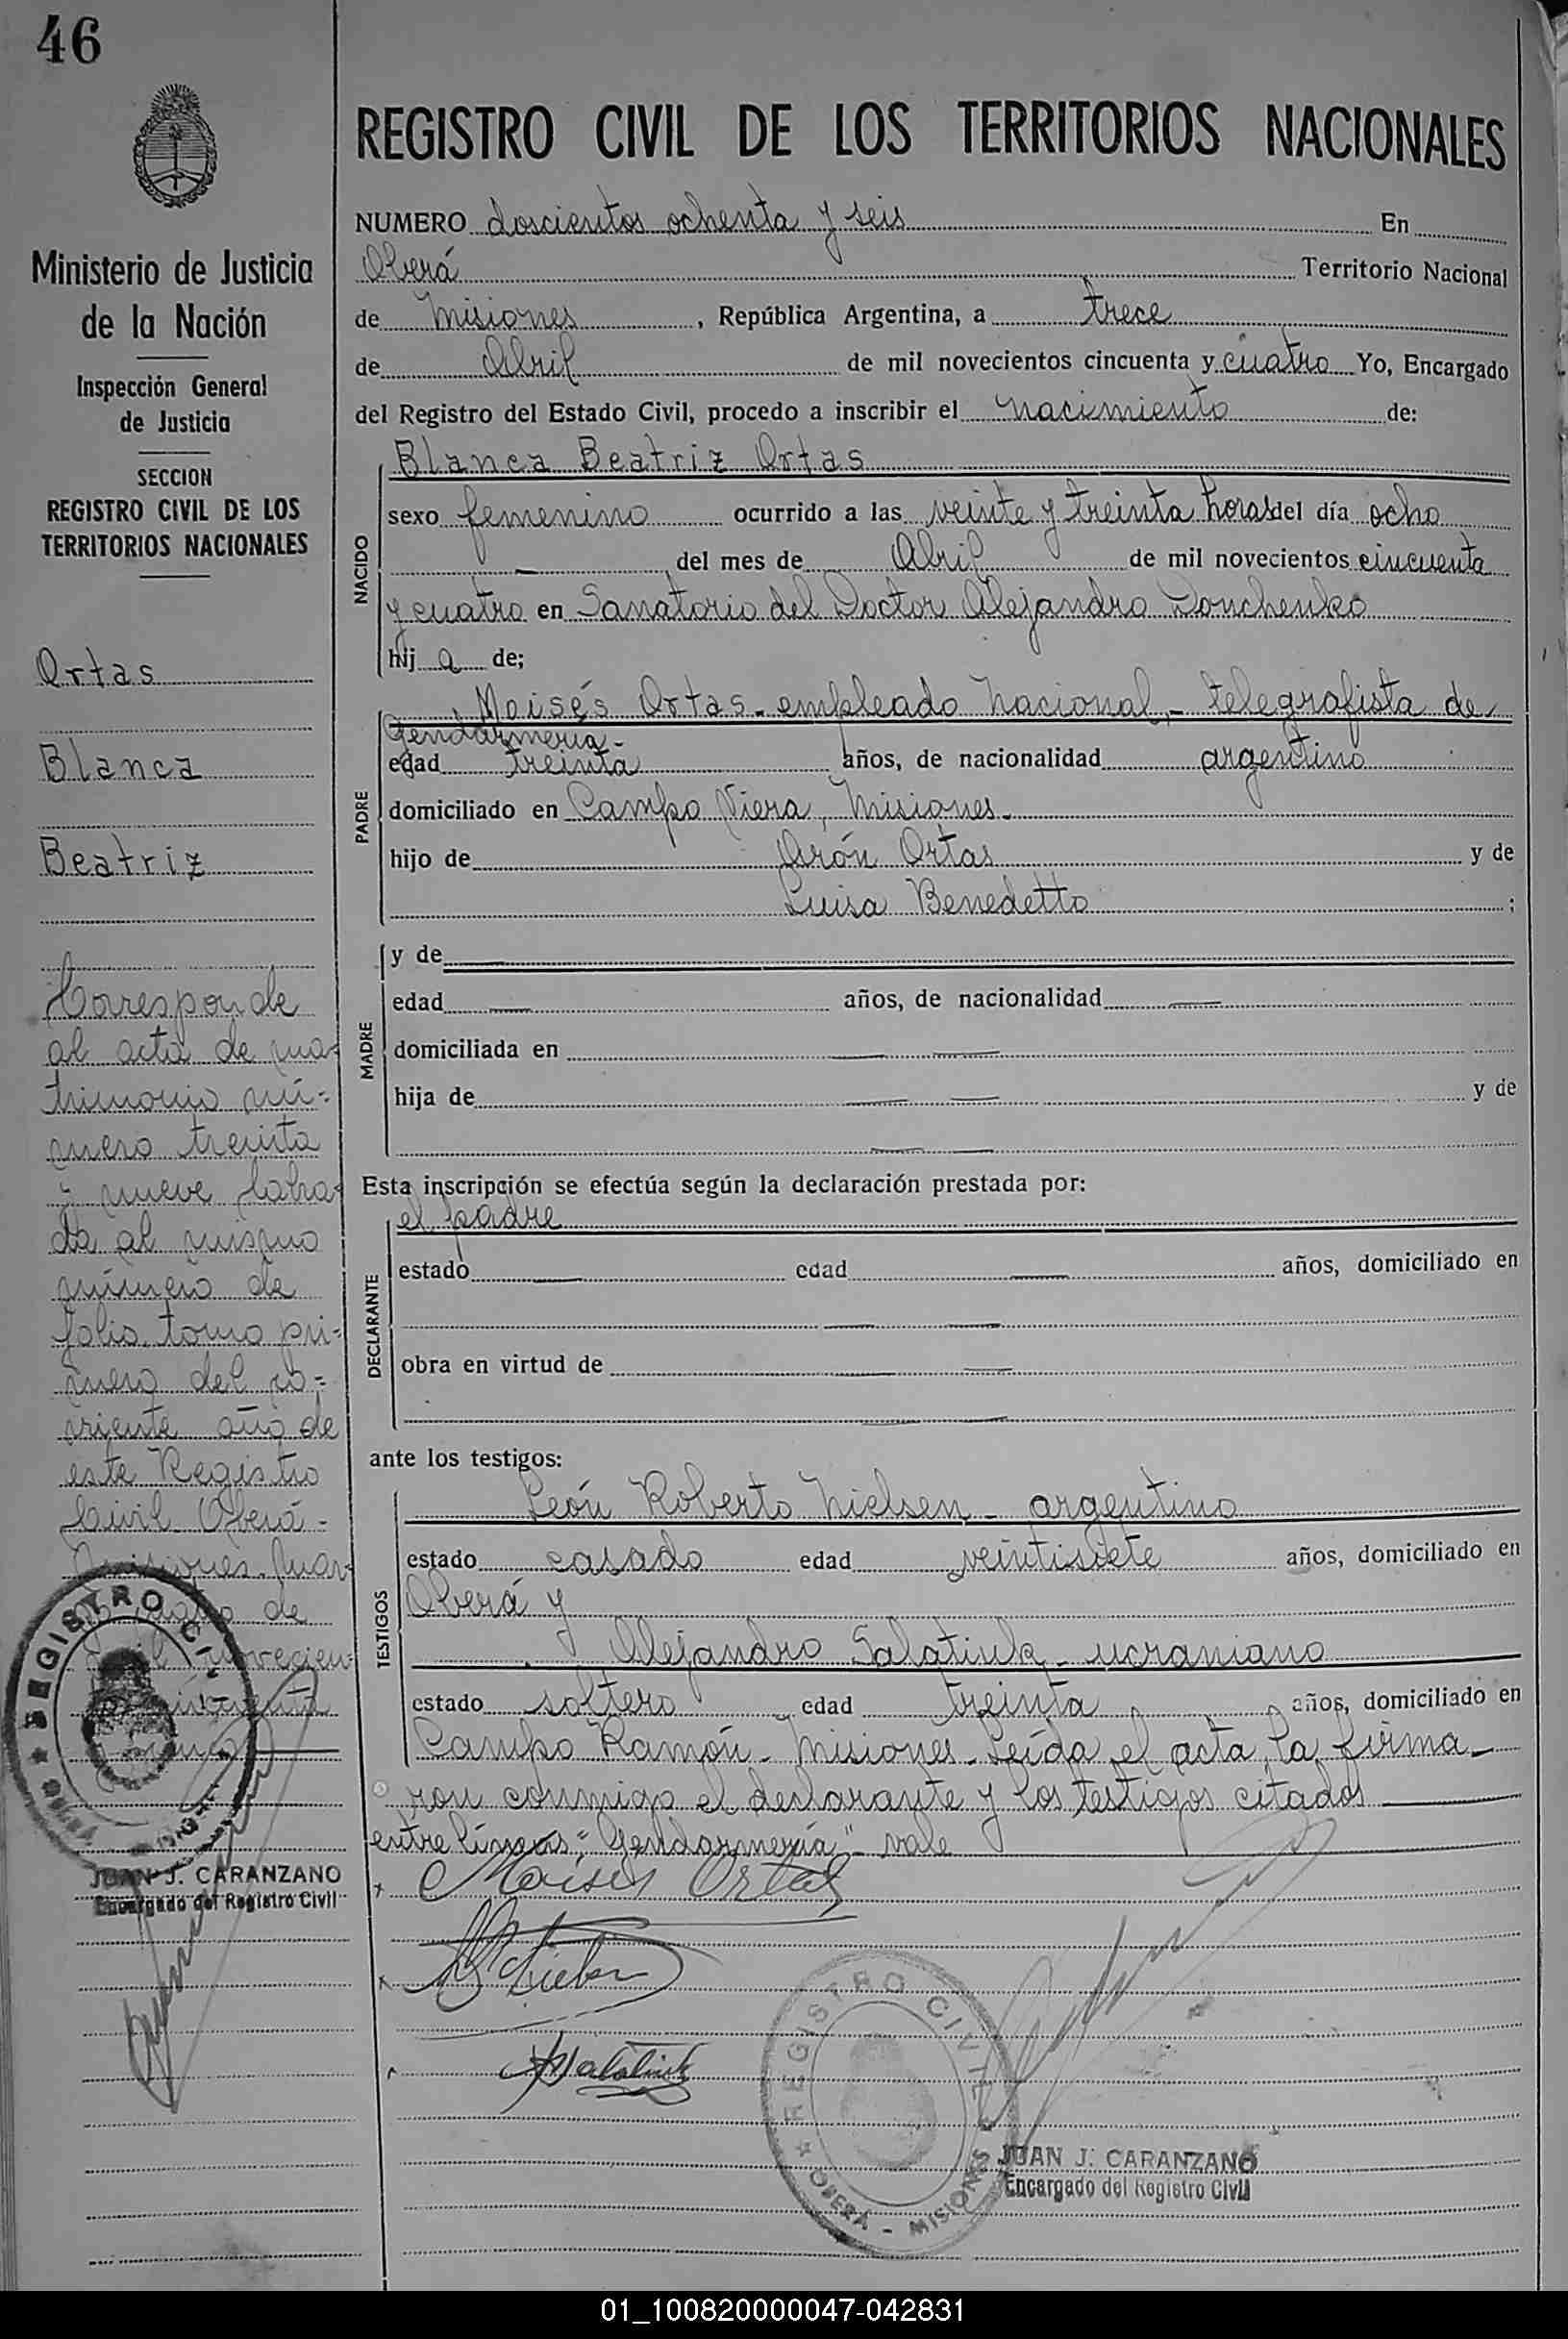 46
Ministerio de Justicia
de la Nación
Inspección General
de Justicia
SECCION
REGISTRO CIVIL DE LOS
TERRITORIOS NACIONALES
Ortas
Blanca
Beatriz
Corresponde
al acta de ma-
trimonio nú-
mero treinta
y nueve labra-
da al mismo
número de
folio, tomo pri-
mero del co-
rriente año de
este Registro
Civil Oberá-
Misiones. Mar-
de
novecien-
cincuenta
REGISTRO CIVIL
OBERÁ
JUAN J. CARANZANO
Encargado del Registro Civil
REGISTRO CIVIL DE LOS TERRITORIOS NACIONALES
NUMERO doscientos ochenta y seis En
Oberá Territorio Nacional
de Misiones, República Argentina, a trece
de Abril de mil novecientos cincuenta y cuatro Yo, Encargado
del Registro del Estado Civil, procedo a inscribir el nacimiento de:
Blanca Beatriz Ortas
NACIDO
sexo femenino ocurrido a las veinte y treinta horas del día ocho
del mes de Abril de mil novecientos cincuenta
y cuatro en Sanatorio del Doctor Alejandro Donchenko
hija de;
PADRE
Moisés Ortas - empleado nacional, - telegrafista de
Gendarmería -
edad treinta años, de nacionalidad argentino
domiciliado en Campo Viera, Misiones.
hijo de Arón Ortas y de
Luisa Benedetto ;
MADRE
y de
edad años, de nacionalidad
domiciliada en
hija de y de
Esta inscripción se efectúa según la declaración prestada por:
el padre
DECLARANTE
estado edad años, domiciliado en
obra en virtud de
ante los testigos:
TESTIGOS
León Roberto Nielsen - argentino
estado casado edad veintisiete años, domiciliado en
Oberá y
Alejandro Salatiuk - ucraniano
estado soltero edad treinta años, domiciliado en
Campo Ramón - Misiones - Leída el acta, la firma-
ron conmigo el declarante y los testigos citados
entre líneas: "Gendarmería" - vale
Moisés Ortas
REGISTRO CIVIL
OBERÁ - MISIONES
JUAN J. CARANZANO
Encargado del Registro Civil
01_100820000047-042831